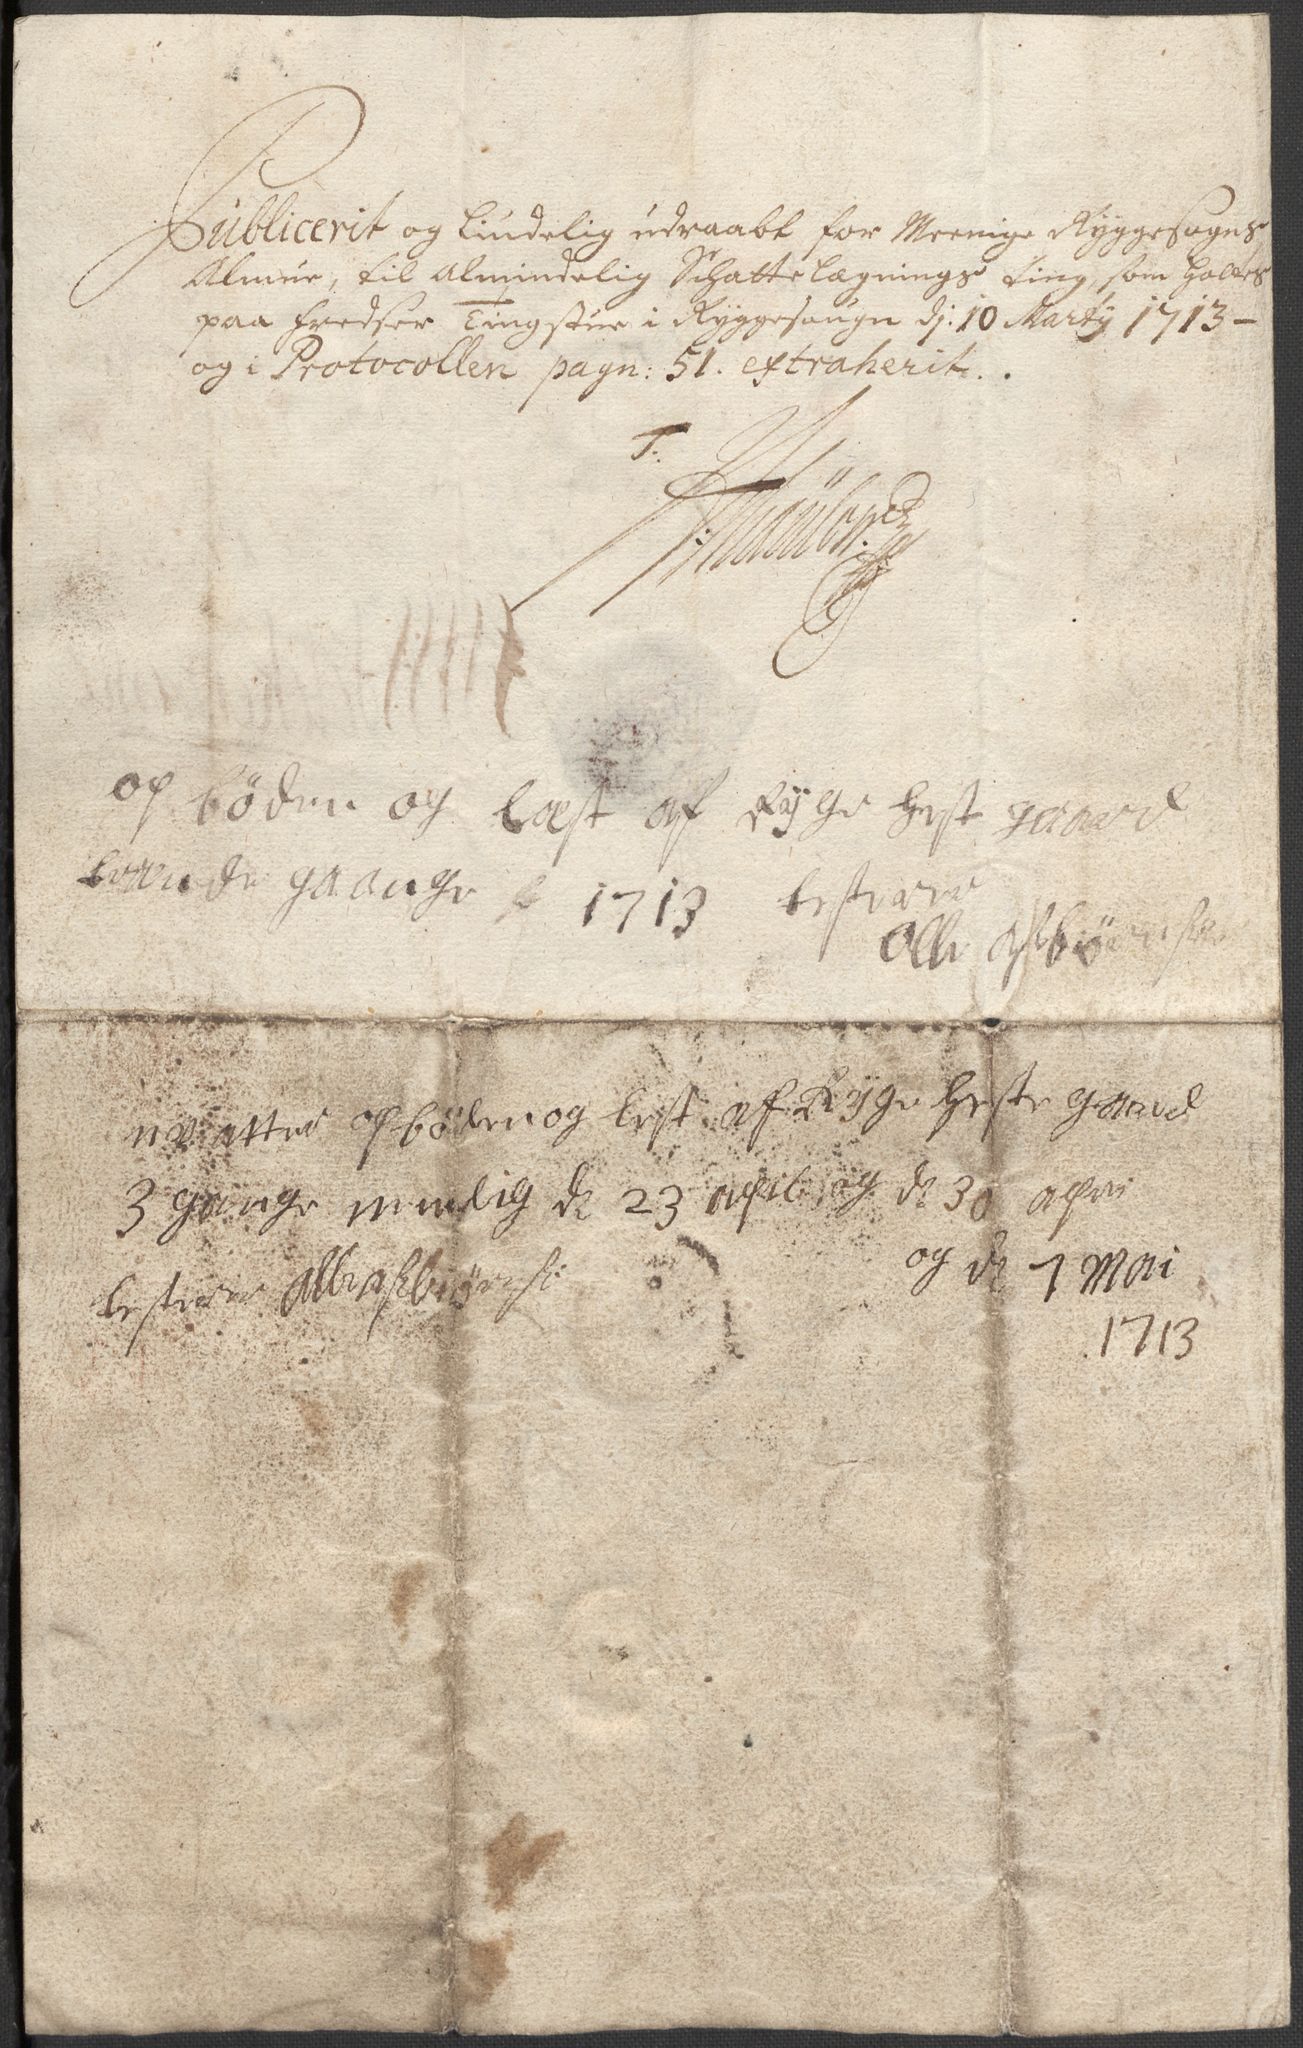 Publicerit og Liudelig udraabt for Meenige Ryggesogns
Almue, til Almindelig Schattelægnings ting som holtes
paa Fredser Tingstue i Ryggesougn dj: 10 Martij 1713 –
og i Protocollen pagn: 51. extraherit..
T.
op böden og læst af Ryge hest gaard
gaange 1713 testerer
Olle asbö
nu atter op böden og lest af Ryge Heste gaard
3 gange nemlig de 23 april og de 30 apri
og de 7 Mai
testerer Olle asbiörnsn
1713